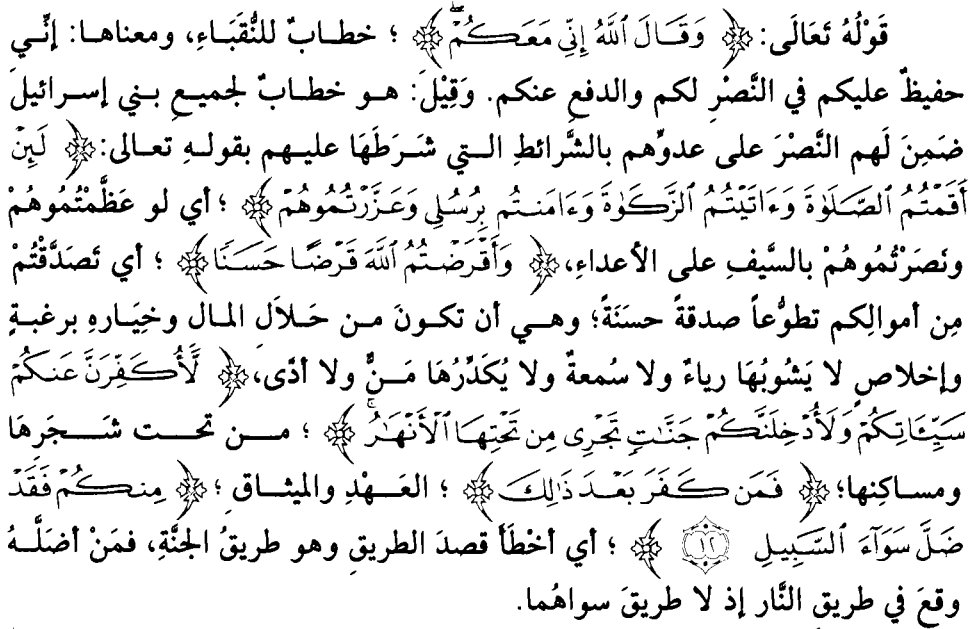 قَوْلُهُ تَعَالَى: ﴿ وَقَالَ ٱللَّهُ إِنِّي مَعَكُمْۖ ﴾ ؛ خطابٌ للنُّقَبَاءِ، ومعناها: إنِّي
حفيظٌ عليكم في النَّصْرِ لكم والدفعِ عنكم. وَقِيْلَ: هو خطابٌ لجميعِ بني إسرائيلَ
ضَمِنَ لَهم النَّصْرَ على عدوِّهم بالشَّرائطِ التي شَرَطَهَا عليهم بقولهِ تعالى: ﴿ لَئِنْ
أَقَمْتُمُ ٱلصَّلَوٰةَ وَءَاتَيْتُمُ ٱلزَّكَوٰةَ وَءَامَنتُم بِرُسُلِي وَعَزَّرْتُمُوهُمْ ﴾ ؛ أي لو عَظَّمْتُمُوهُمْ
ونَصَرْتُمُوهُمْ بالسَّيفِ على الأعداءِ، ﴿ وَأَقْرَضْتُمُ ٱللَّهَ قَرْضًا حَسَنًا ﴾ ؛ أي تَصَدَّقْتُمْ
مِن أموالِكم تطوُّعاً صدقةً حسَنَةً؛ وهي أن تكونَ من حَلاَلِ المال وخِيَارهِ برغبةٍ
وإخلاصٍ لا يَشُوبُهَا رياءٌ ولا سُمعةٌ ولا يُكَدِّرُهَا مَنٌّ ولا أذًى، ﴿ لَّأُكَفِّرَنَّ عَنكُمْ
سَيِّـَٔاتِكُمْ وَلَأُدْخِلَنَّكُمْ جَنَّـٰتٍ تَجْرِى مِن تَحْتِهَا ٱلْأَنْهَـٰرُۚ ﴾ ؛ من تحت شجَرِهَا
ومساكِنها؛ ﴿ فَمَن كَفَرَ بَعْدَ ذَٰلِكَ ﴾ ؛ العَهْدِ والميثاق ؛ ﴿ مِنكُمْ فَقَدْ
ضَلَّ سَوَآءَ ٱلسَّبِيلِ ١٢ ﴾ ؛ أي أخْطَأَ قصدَ الطريقِ وهو طريقُ الجنَّةِ، فمَنْ أضلَّهُ
وقعَ في طريقِ النَّار إذ لا طريقَ سواهُما.